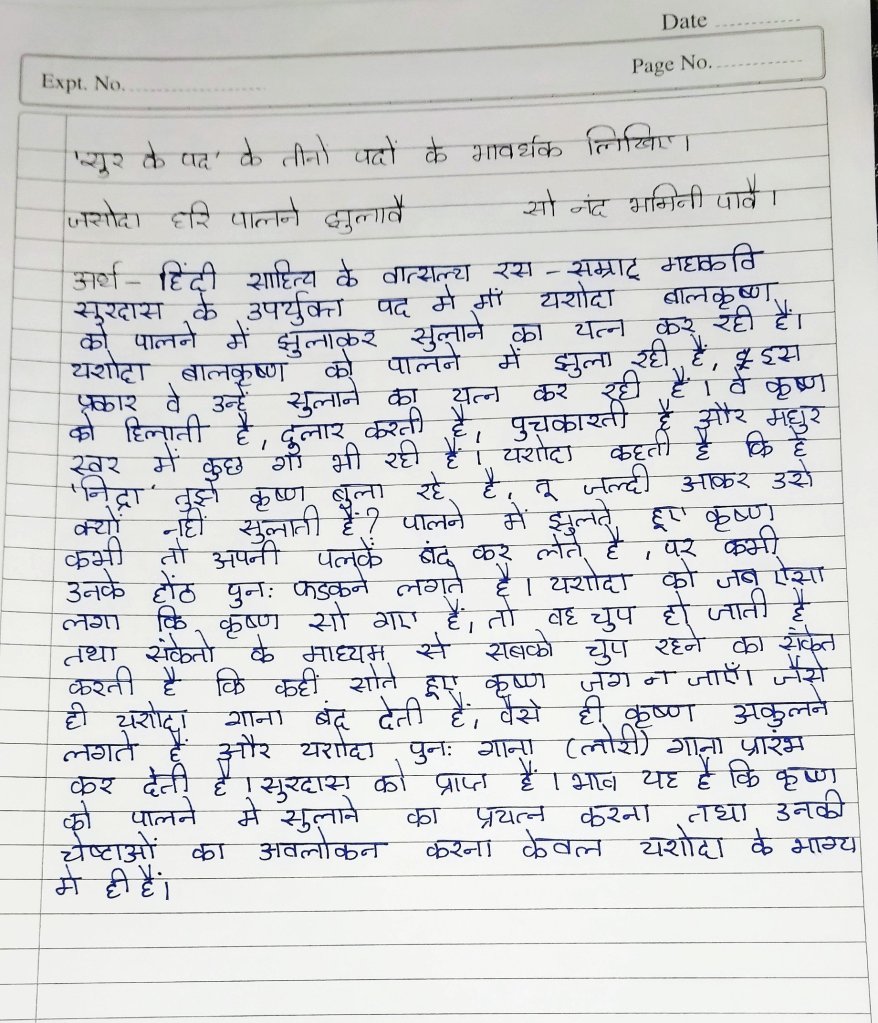 Date
Page No.
Expt. No.
'सूर के पद' के तीनो पदों के भावर्थक लिखिए।
जसोदा हरि पालने झुलावै सो नंद भामिनी पावै।
अर्थ - हिंदी साहित्य के वात्सल्य रस - सम्राट् महाकवि
सूरदास के उपर्युक्त पद मे माँ यशोदा बालकृष्ण
को पालने में झुलाकर सुलाने का यत्न कर रही हैं।
यशोदा बालकृष्ण को पालने में झुला रही हैं, इस
प्रकार वे उन्हें सुलाने का यत्न कर रही हैं। वे कृष्ण
को हिलाती है, दुलार करती है, पुचकारती है और मधुर
स्वर में कुछ गा भी रही हैं। यशोदा कहती है कि हे
'निद्रा' तुझे कृष्ण बुला रहे है, तू जल्दी आकर उसे
क्यों नहीं सुलाती हैं? पालने में झुलते हुए कृष्ण
कभी तो अपनी पलकें बंद कर लेते है, पर कभी
उनके होंठ पुनः फडकने लगते है। यशोदा को जब ऐसा
लगा कि कृष्ण सो गए हैं, तो वह चुप हो जाती है
तथा संकेतो के माध्यम से सबको चुप रहने का संकेत
करती है कि कहीं सोते हुए कृष्ण जग न जाएँ। जैसे
ही यशोदा गाना बंद देती हैं, वैसे ही कृष्ण अकुलने
लगते हैं और यशोदा पुनः गाना (लोरी) गाना प्रारंभ
कर देती है। सूरदास को प्राप्त हैं। भाव यह है कि कृष्ण
को पालने मे सुलाने का प्रयत्न करना तथा उनकी
चेष्टाओं का अवलोकन करना केवल यशोदा के भाग्य
मे ही हैं।